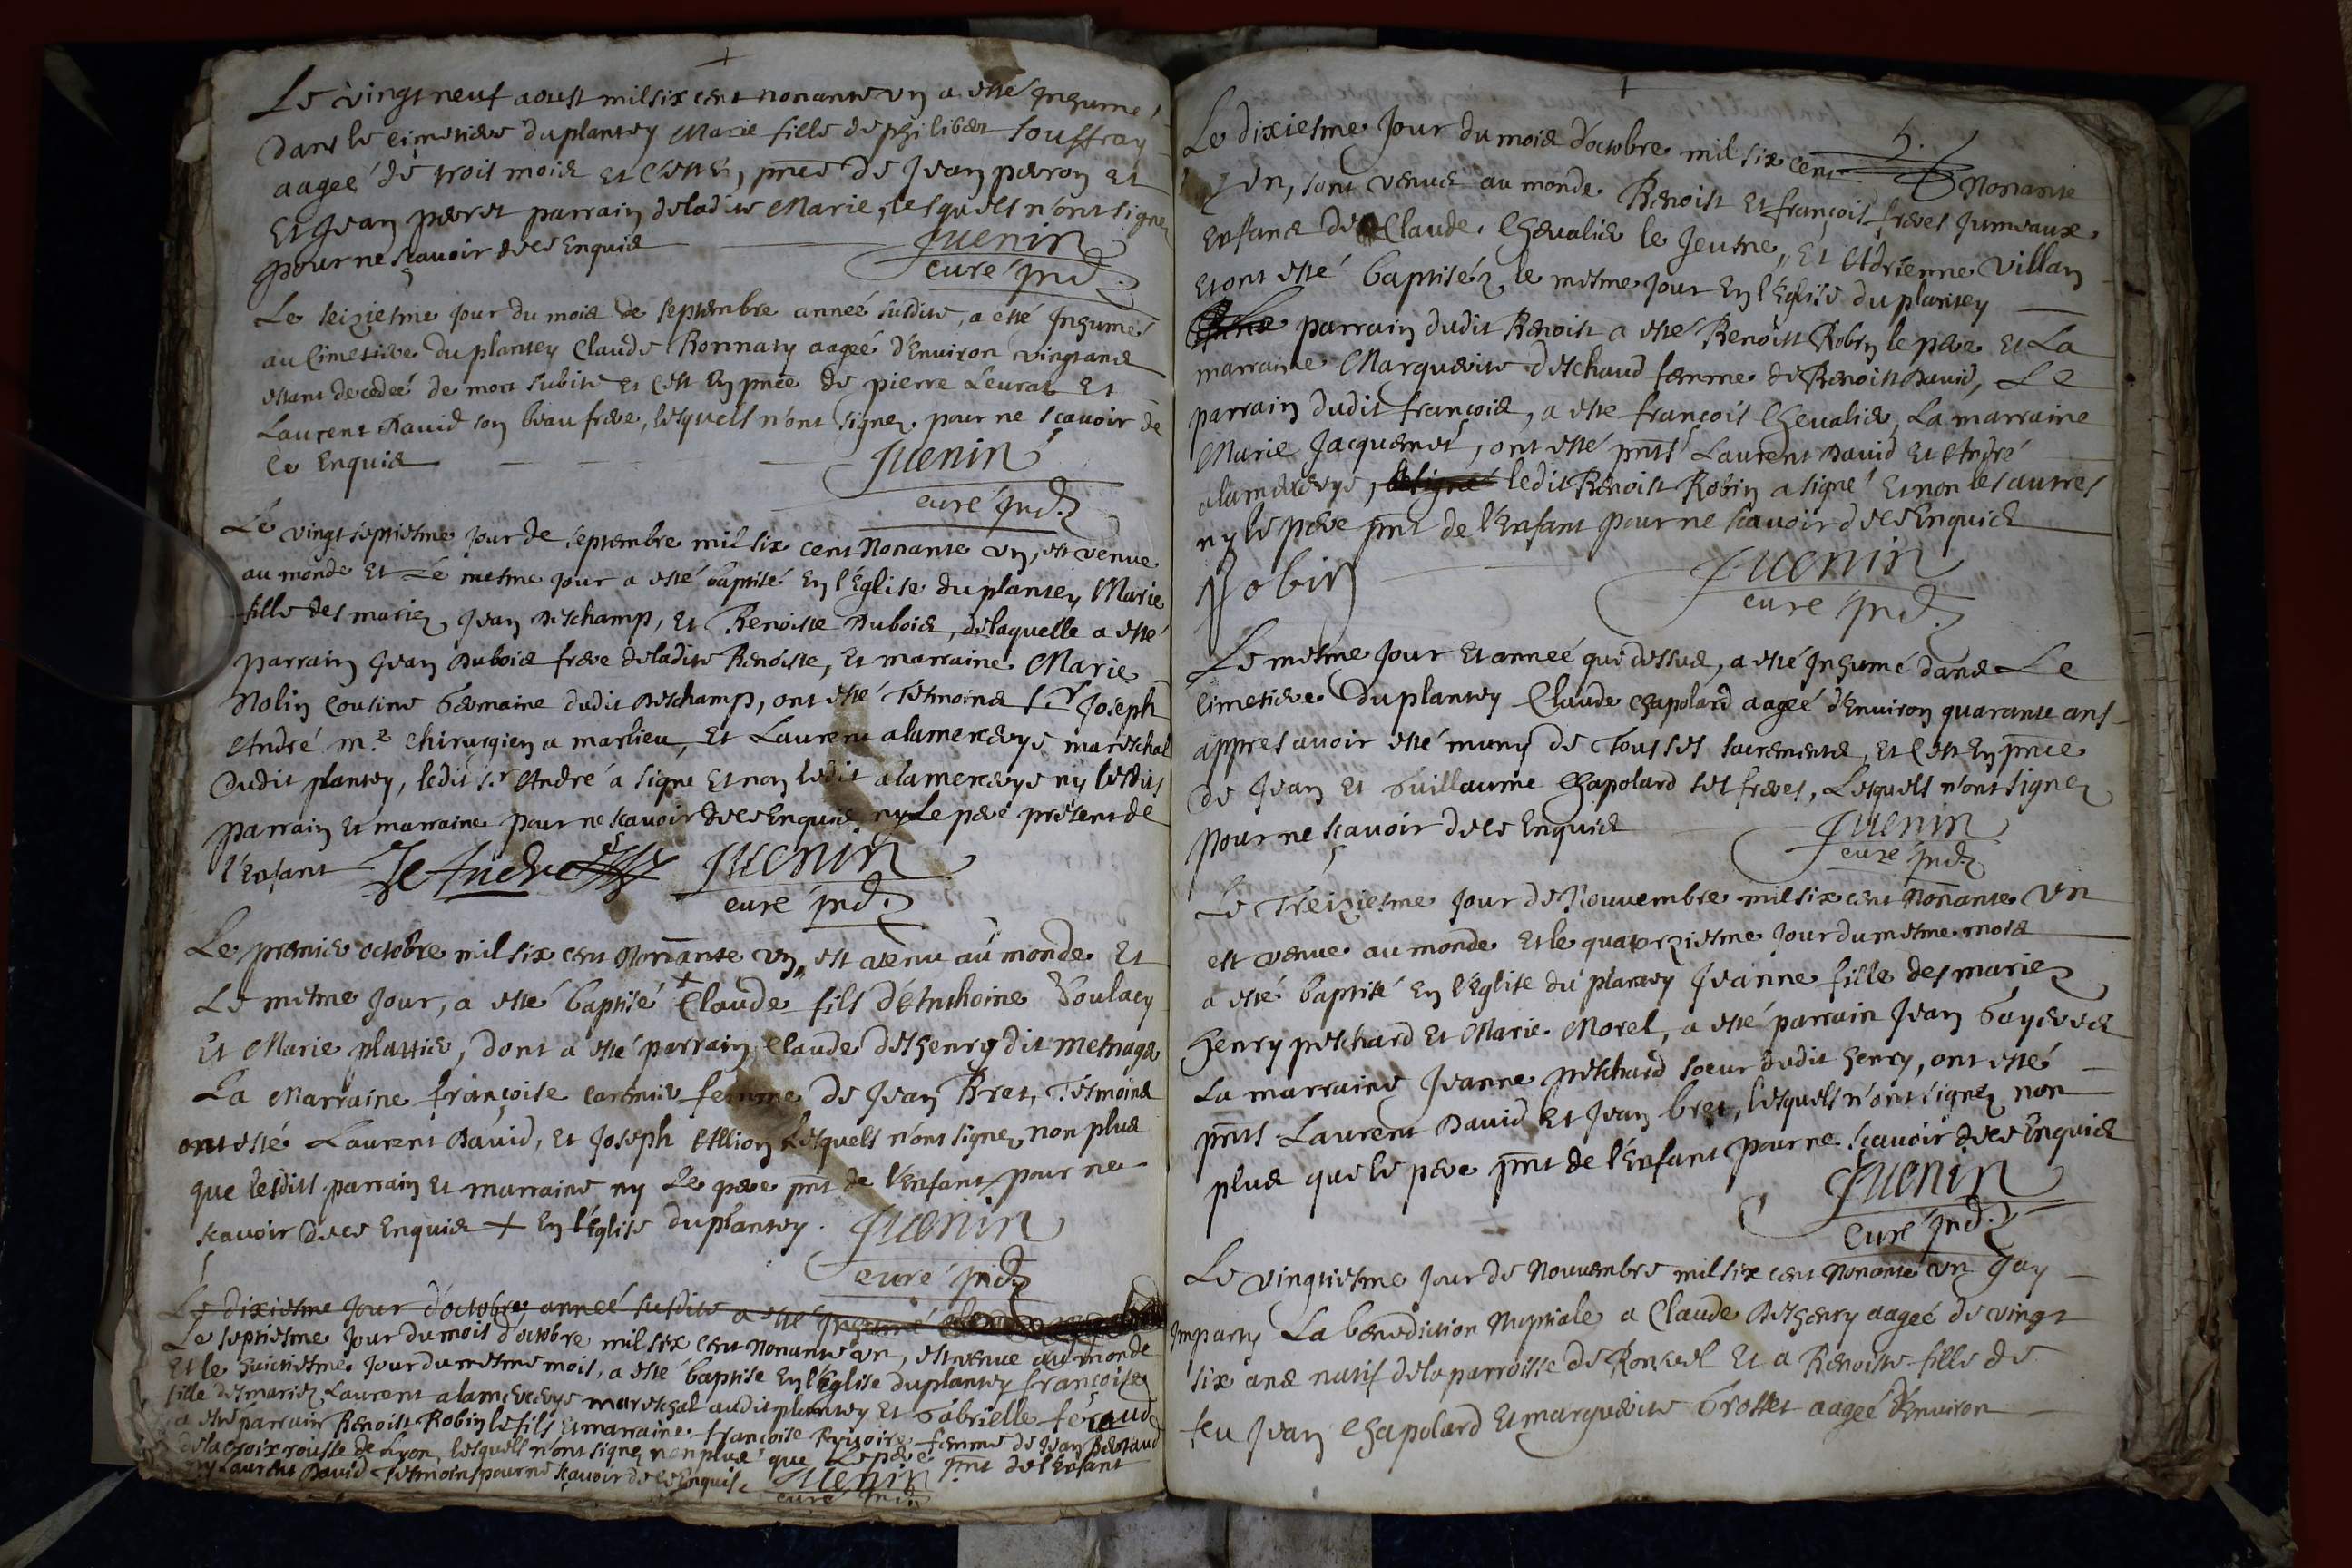 Le vingt neuf aoust mil six cent nonante vn a esté Inhumé
dans le cimetiere du plantey Marie fille de philibert souffray
aageé de trois mois et c'est En pñce de Jean peron et
Et Jean peret parrain de ladite Marie, lesquels n'ont signez
pour ne scavoir de ce Enquis
Juenin
curé ind.
Le seiziesme jour du mois de septembre anneé susdite, a esté Inhumé
au cimetiere du plantey Claude Bonnaty aageé d'Environ vingt ans
estant decedeé de mort subite et c'est En pñce de pierre Leurat et
Laurent David son beau frere, lesquels n'ont signez pour ne scavoir de
ce Enquis
Juenin
curé ind.
Le vingt septiesme jour de septembre mil six cent Nonante vn, est venue
au monde et Le mesme jour a esté baptisé En l'Eglise du plantey Marie
fille des mariez Jean Deschamp, et Benoiste Dubois, de laquelle a esté
parrain Jean Dubois frere de ladite Benoiste, et marraine Marie
Nolin cousine Germaine dudit Deschamp, ont esté Tesmoins s.r Joseph
André m.e chirurgien a marlieu, et Laurent alamercerye mareschal
dudit plantey, ledit s.r André a signé et non ledit alamercerye ny lesdits
parrain et marraine pour ne scavoir de ce Enquis ny Le pere present de
l'Enfant Je André Juenin
curé ind.
Le premier octobre mil six cent Nonante vn, est venu au monde et
Le mesme jour, a esté baptisé + Claude fils d'Anthoine Goulacy
Et Marie plattier, dont a esté parrain Claude deshenry dit mesnage
La Marraine françoise carmier femme de Jean Bret, Tesmoins
ont esté Laurent David, et Joseph Allion Lesquels n'ont signez non plus
que lesdits parrain et marraine ny Le pere pñt de l'Enfant pour ne
scavoir de ce Enquis + En l'Eglise du plantey. Juenin
curé ind.
Le dixiesme jour d'octobre anneé susdite a esté Inhumé
Le septiesme jour du mois d'octobre mil six cent Nonante vn, est venue au monde
Et le huictiesme jour du mesme mois, a esté baptisé En l'Eglise du plantey françoise
fille des mariez Laurent alamercerye mareschal audit plantey Et Gabrielle feraude
a esté parrain Benoist Robin le fils et marraine françoise femme de Jean Bertaud
de la croix rousse de Lyon, lesquels n'ont signez non plus que Le pere pñt de l'Enfant
ny Laurent David Tesmoins pour ne scavoir de ce Enquis. Juenin
curé ind.
5.
Le dixiesme Jour du mois d'octobre mil six cent Nonante
vn, sont venus au monde Benoist et françois freres Jumeaux
Enfans de Claude Chevalier le Jeusne, Et Adrienne Villan
et ont esté baptiséz le mesme jour En l'Eglise du plantey
parrain dudit Benoist a esté Benoist Robin le pere et La
marraine Marguerite Deschaud femme de Benoist David, Le
parrain dudit françois, a esté françois Chevalier, La marraine
Marie Jacquemet, ont esté pñts Laurent David et André
alamercerye, ledit Benoist Robin a signé et non les autres
ny le pere pñt de l'Enfant pour ne scavoir de ce Enquis
Robin Juenin
curé ind.
Le mesme jour et anneé que dessus, a esté Inhumé dans Le
cimetiere du plantey Claude Chapolard aageé d'Environ quarante ans
appres avoir esté muny de Tous ses sacrements, et c'est En pñce
de Jean et Guillaume Chapolard ses freres, Lesquels n'ont signez
pour ne scavoir de ce Enquis
Juenin
curé ind.
Le Treiziesme jour de Nouvembre mil six cent Nonante vn
est venue au monde et le quatorziesme jour du mesme mois
a esté baptisé En l'Eglise du plantey Jeanne fille des mariez
henry peschard et Marie Morel, a esté parrain Jean
La marraine Jeanne peschard soeur dudit henry, ont esté
pñts Laurent David et Jean bret, lesquels n'ont signez non
plus que le pere pñt de l'Enfant pour ne scavoir de ce Enquis
Juenin
Curé ind.
Le vingtiesme jour de Nouvembre mil six cent Nonante vn Jay
Imparty La benediction Nuptiale a Claude Deshenry aageé de vingt
six ans natif de la parroisse de Ronzuel et a Benoiste fille de
feu Jean Chapolard et marguerite Grosset aageé d'Environ